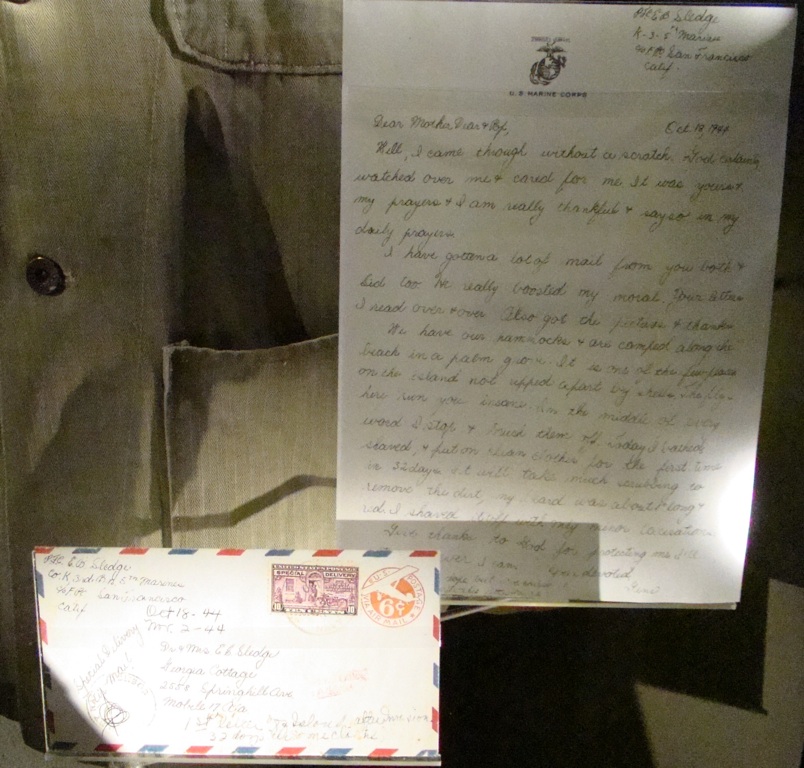 Pfc E B Sledge
K-3-5th Marines
% F.P.O. San Francisco
Calif.
U. S. MARINE CORPS
Dear Mother Dear & Pop,
Oct. 18, 1944
Well, I came through without a scratch. God certainly
watched over me & cared for me. It was yours &
my prayers & I am really thankful & say so in my
daily prayers.
I have gotten a lot of mail from you both &
Sid too. It really boosted my moral. Your letters
I read over & over. Also got the pictures & thanks.
We have our hammocks & are camped along the
beach in a palm grove. It is one of the few places
on the island not ripped apart by shells. The flies
here run you insane. In the middle of every
word I stop & knock them off. Today I bathed
shaved, & put on clean clothes for the first time
in 32 days. It will take much scrubbing to
remove the dirt. my beard was about 1" long &
red. I shaved itself with only minor lacerations.
Give thanks to God for protecting me. I'll
I am Your devoted
Gene
Pfc. E. B. Sledge
Co. K 3rd Bn 5th Marines
% F.P.O. San Francisco
Calif
Oct 18-44
2-44
UNITED STATES POSTAGE
SPECIAL DELIVERY
10 TEN CENTS 10
U.S. POSTAGE
6¢
VIA AIR MAIL
Special Delivery
Air Mail
Dr & Mrs E. S. Sledge
Georgia Cottage
2558 Springhill Ave
Mobile 17 Ala
1st letter after invasion
32 days